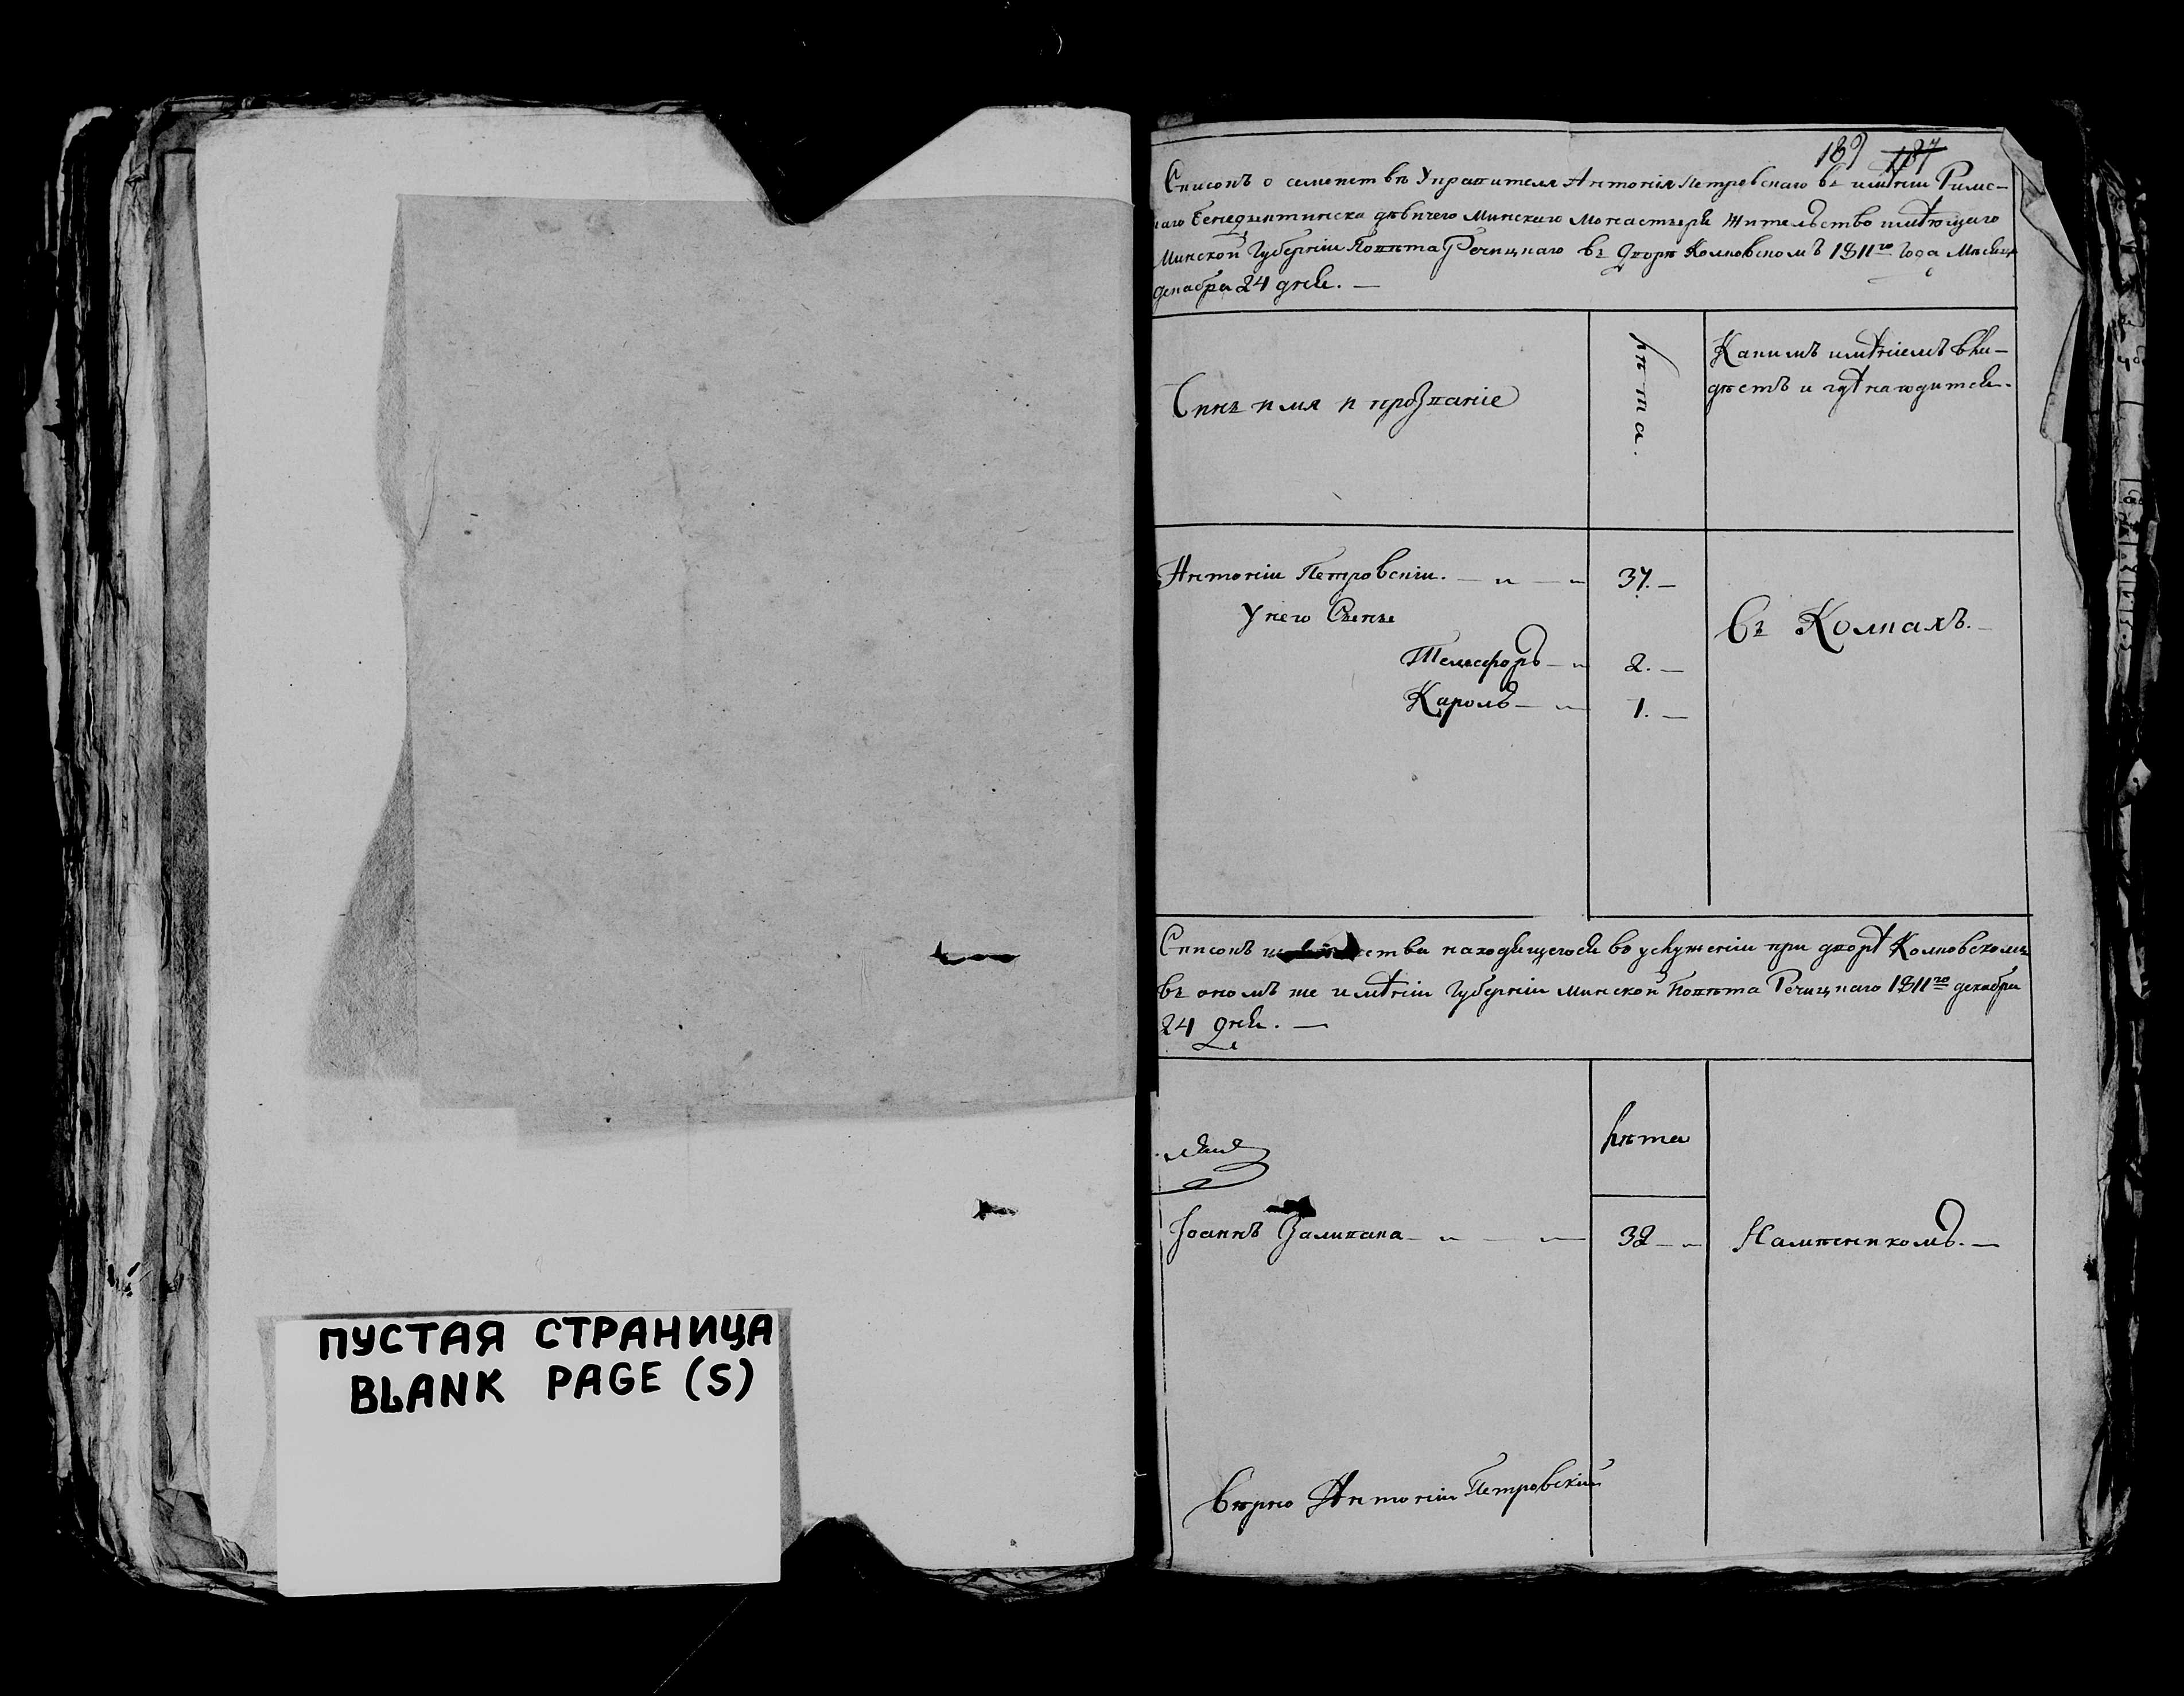 ПУСТАЯ СТРАНИЦА
BLANK PAGE (S)
189
Списокъ о семействѣ Управителя Антонія Петровскаго въ имѣніи Римс-
каго Бенедиктинска дѣвичего Минскаго Монастыря Жительство имѣющаго
Минской Губерніи Повѣта Речицкаго въ Дворѣ 1811го года Месяца
декабря 24 дня. —
имя и прозваніе
лѣта.
Какимъ имѣніемъ вла-
дѣетъ и гдѣ находится.
Антоніи Петровскіи.
37. —
У него Сыны
Телесфоръ
2. —
Кароль
1. —
Въ Колпахъ. —
Списокъ находящегося во услуженіи при дворѣ
въ ономъ же имѣніи Губерніи Минской Повѣта Речицкаго 1811го декабря
24 дня. —
лѣта
Іоаннъ
32
Верно Антоніи Петровскій